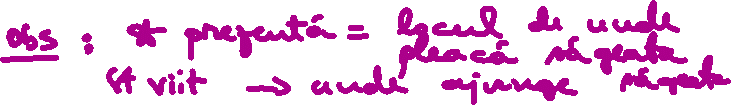 obs : st prezentă = locul de unde
pleacă săgeata
st viit → unde ajunge săgeata